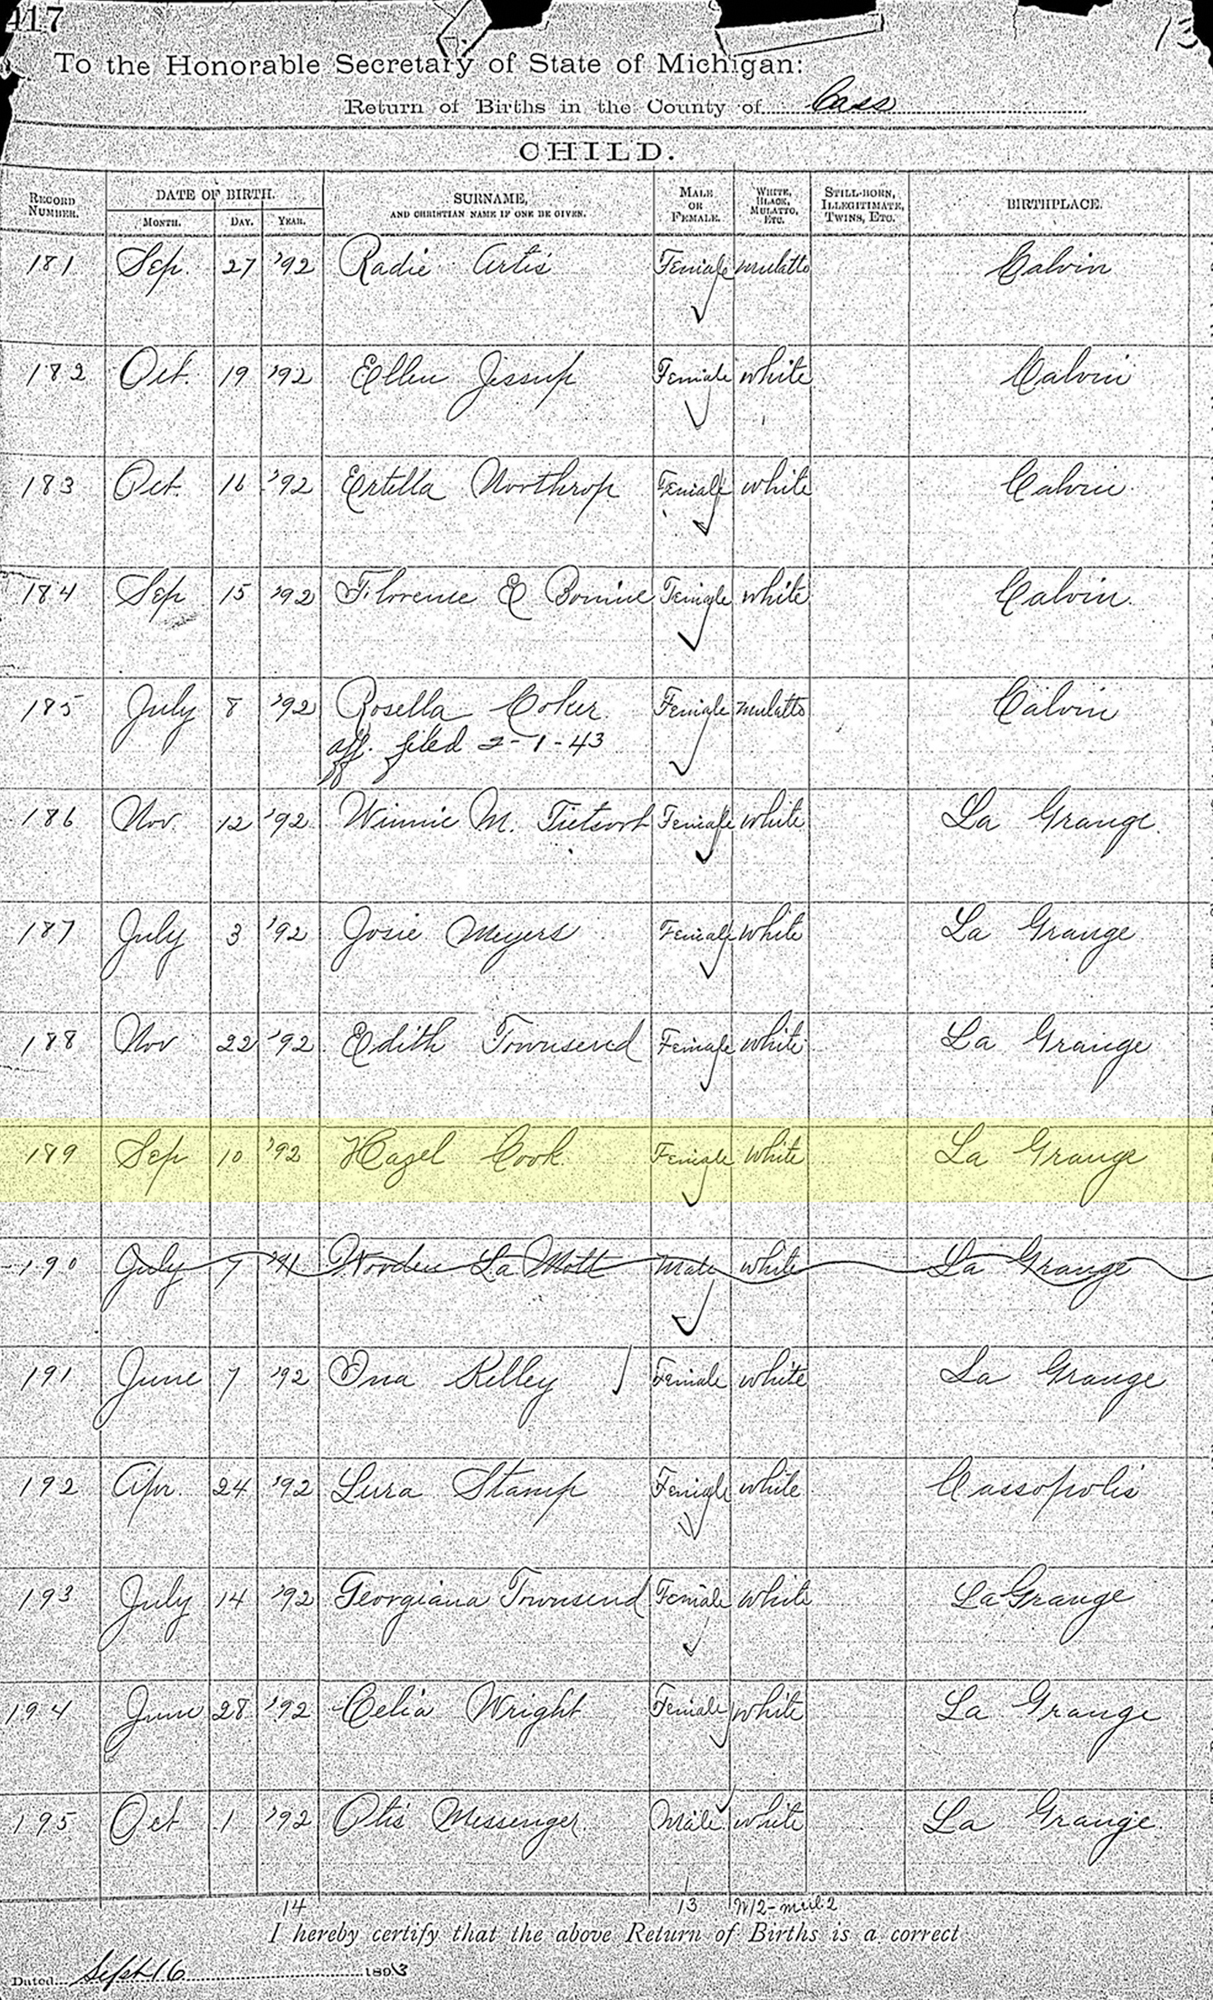 417
13
To the Honorable Secretary of State of Michigan:
Return of Births in the County of Cass
CHILD.
RECORD NUMBER. DATE OF BIRTH. MONTH. DAY. YEAR. SURNAME, AND CHRISTIAN NAME IF ONE BE GIVEN. MALE OR FEMALE. WHITE, BLACK, MULATTO, ETC. STILL-BORN, ILLEGITIMATE, TWINS, ETC. BIRTHPLACE.
181 Sep. 27 '92 Radie Artis Female mulatto Calvin
182 Oct. 19 '92 Ellen Jessup Female white Calvin
183 Oct. 16 '92 Ertella Northrop Female white Calvin
184 Sep 15 '92 Florense E Bonine Female white Calvin
185 July 8 '92 Rosella Coker Female mulatto Calvin
aff. filed 2-1-43
186 Nov. 12 '92 Winnie M. Tietsort Female white La Grange
187 July 3 '92 Josie Meyers Female white La Grange
188 Nov 22 '92 Edith Townsend Female white La Grange
189 Sep 10 '92 Hazel Cook Female white La Grange
190 July 7 '91 Wooden La Mott Male white La Grange
191 June 7 '92 Ona Kelley Female white La Grange
192 Apr. 24 '92 Lura Stamp Female white Cassopolis
193 July 14 '92 Georgiana Townsend Female white La Grange
194 June 28 '92 Celia Wright Female white La Grange
195 Oct 1 '92 Otis Messenger Male white La Grange
14 13 W12-mul.2
I hereby certify that the above Return of Births is a correct
Dated Sept 16 1893